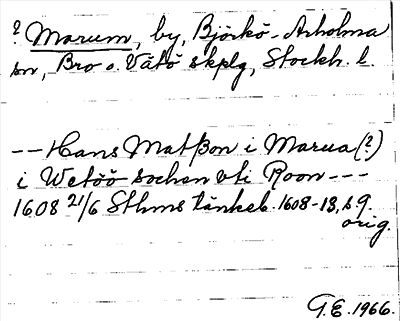 ? Marum, by, Björkö-Arholma
sn, Bro o. Vätö skplg, Stockh. l.
-- Hans Matßon i Marua (?)
i Wetöö sochen vti Roon ---
1608 21/6 Sthms tänkeb. 1608-13, s 9.
orig.
G.E. 1966.